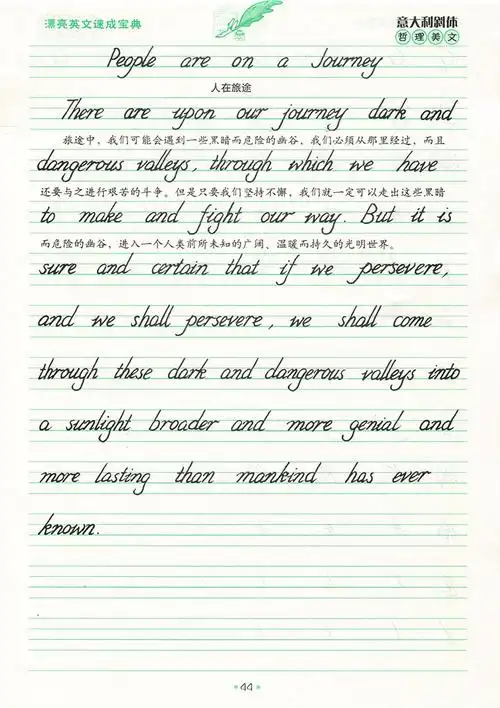 漂亮英文速成宝典
意大利斜体
哲理美文
People are on a Journey
人在旅途
There are upon our journey dark and
旅途中，我们可能会遇到一些黑暗而危险的幽谷，我们必须从那里经过，而且
dangerous valleys, through which we have
还要与之进行艰苦的斗争。但是只要我们坚持不懈，我们就一定可以走出这些黑暗
to make and fight our way. But it is
而危险的幽谷，进入一个人类前所未知的广阔、温暖而持久的光明世界。
sure and certain that if we persevere,
and we shall persevere, we shall come
through these dark and dangerous valleys into
a sunlight broader and more genial and
more lasting than mankind has ever
known.
44